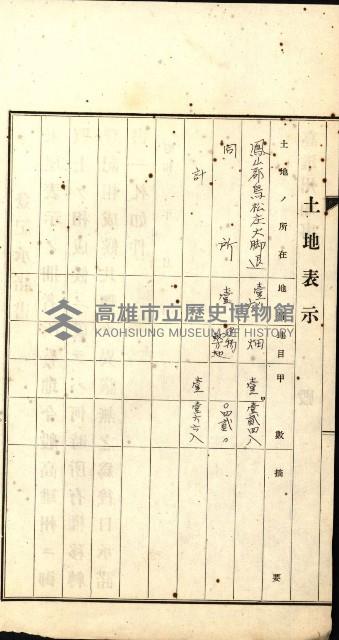 土地表示
土地ノ所在 地番 地目 甲數 摘要
鳳山郡鳥松庄大脚退 畑 壹。壹貳四八
同所 壹 建物敷地 。四貳。
計 壹 壹六六八
高雄市立歷史博物館
KAOHSIUNG MUSEUM OF HISTORY